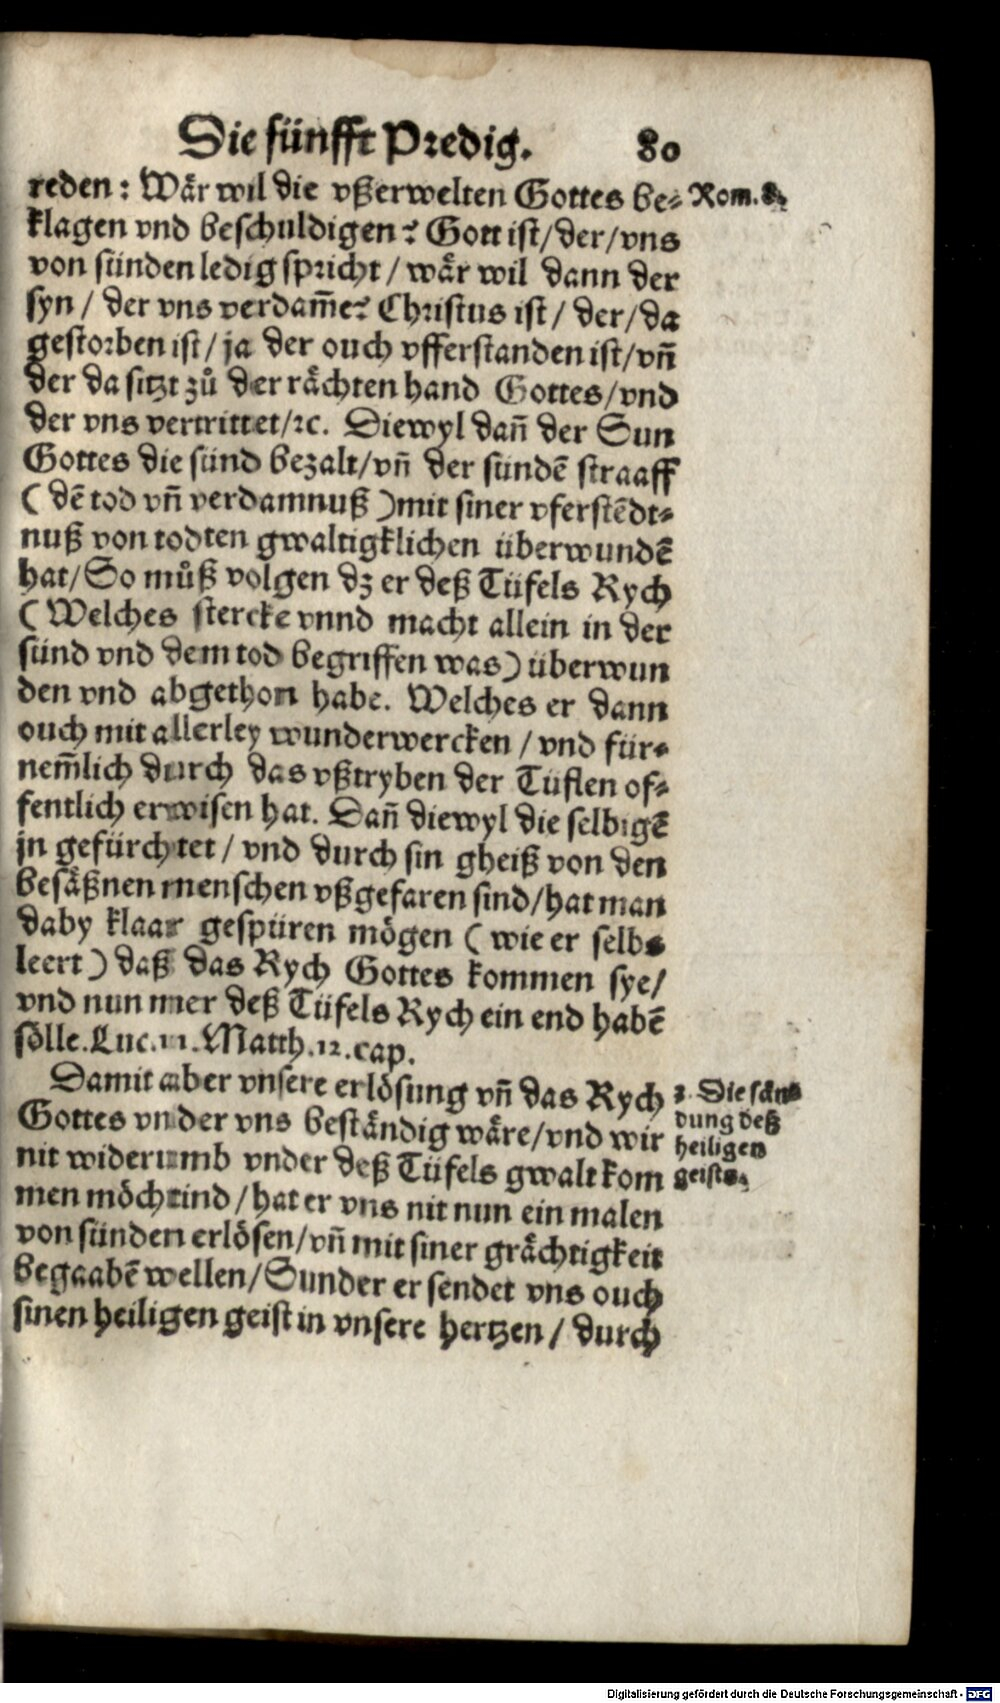 Die fünfft Predig. 80
reden: Wär wil die vßerwelten Gottes be- Rom. 8.
klagen vnd beschuldigen? Gott ist/der/vns
von sünden ledig spricht/wär wil dann der
syn/der vns verdam̄e? Christus ist/der/da
gestorben ist/ja der ouch vfferstanden ist/vn̄
der da sitzt zů der rächten hand Gottes/vnd
der vns vertrittet/ꝛc. Diewyl dan̄ der Sun
Gottes die sünd bezalt/vn̄ der sündē straaff
(dē tod vn̄ verdamnuß)mit siner vferstēdt-
nuß von todten gwaltigklichen überwundē
hat/So můß volgen dz er deß Tüfels Rych
(Welches stercke vnnd macht allein in der
sünd vnd dem tod begriffen was)überwun
den vnd abgethon habe. Welches er dann
ouch mit allerley wunderwercken/vnd für-
nem̄lich durch das vßtryben der Tüflen of-
fentlich erwisen hat. Dan̄ diewyl die selbigē
jn gefürchtet/vnd durch sin gheiß von den
besäßnen menschen vßgefaren sind/hat man
daby klaar gespüren mögen (wie er selbs
leert) daß das Rych Gottes kommen sye/
vnd nun mer deß Tüfels Rych ein end habē
sölle. Luc. 11. Matth. 12. cap.
Damit aber vnsere erlösung vn̄ das Rych
Gottes vnder vns beständig wäre/vnd wir
nit widerumb vnder deß Tüfels gwalt kom
men möchtind/hat er vns nit nun ein malen
von sünden erlösen/vn̄ mit siner grächtigkeit
begaabē wellen/Sunder er sendet vns ouch
sinen heiligen geist in vnsere hertzen/durch
2. Die sän-
dung deß
heiligen
geists.
Digitalisierung gefördert durch die Deutsche Forschungsgemeinschaft - DFG